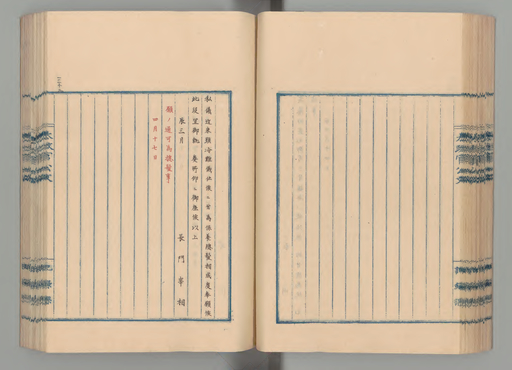 私儀近来頭冷難儀仕候ニ付為保養惣髪相成度奉願候
此段宜御執奏所仰ニ御座候以上
辰三月
長門宰相
願ノ通可為惣髪事
四月十七日